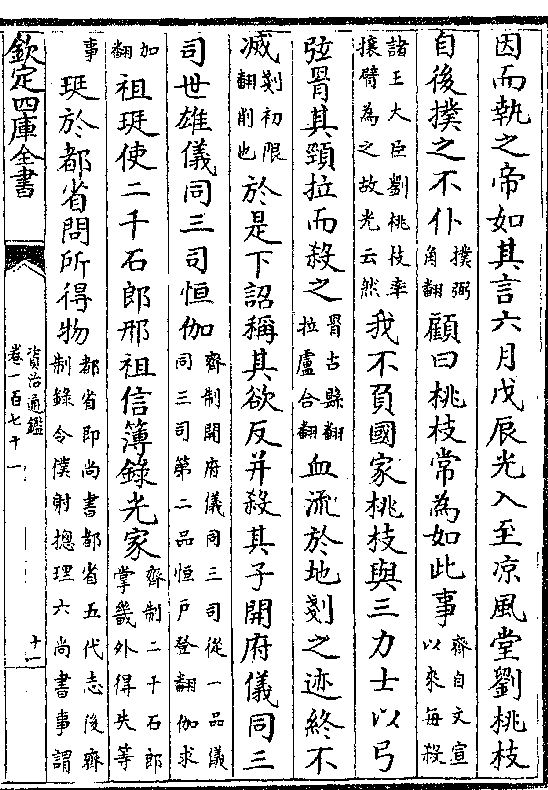 因而執之帝如其言六月戊辰光入至凉風堂劉桃枝
自後撲之不仆撲弼角翻顧曰桃枝常為如此事齊自文宣以來每殺
諸王大臣劉桃枝率攘臂為之故光云然我不負國家桃枝與三力士以弓
弦罥其頸拉而殺之罥古縣翻拉盧合翻血流於地剗之迹終不
滅剗初限翻削也於是下詔稱其欲反并殺其子開府儀同三
司世雄儀同三司恒伽齊制開府儀同三司從一品儀同三司第二品恒戶登翻伽求
加翻祖珽使二千石郎邢祖信簿錄光家齊制二千石郎掌畿外得失等
事珽於都省問所得物都省即尚書都省五代志後齊制錄令僕射摠理六尚書事謂
欽定四庫全書
資治通鑑
卷一百七十一
十一